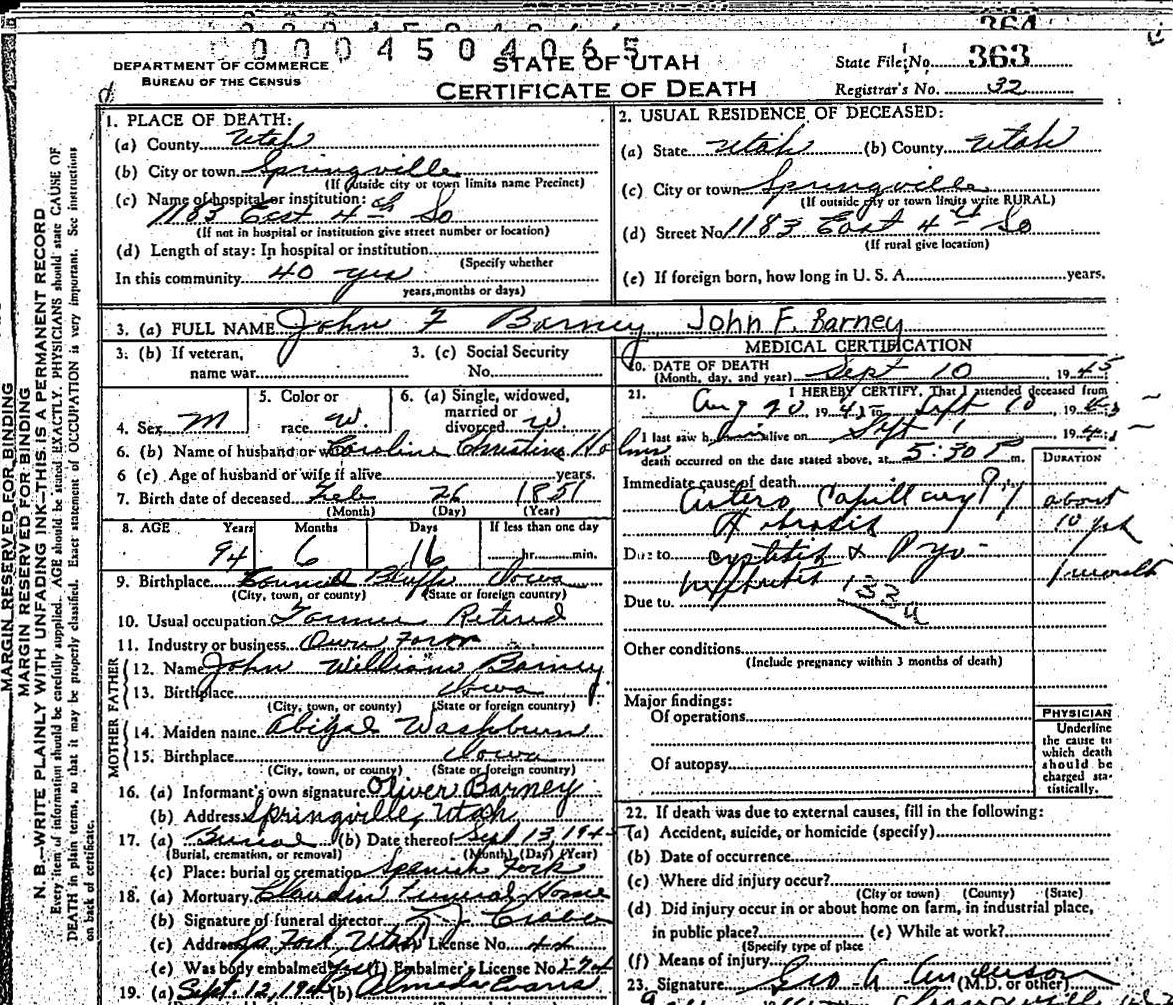 364
0004504065
DEPARTMENT OF COMMERCE
BUREAU OF THE CENSUS
STATE OF UTAH
CERTIFICATE OF DEATH
State File No. 363
Registrar's No. 32
MARGIN RESERVED FOR BINDING
MARGIN RESERVED FOR BINDING
N. B.—WRITE PLAINLY WITH UNFADING INK—THIS IS A PERMANENT RECORD
Every item of information should be carefully supplied. AGE should be stated EXACTLY. PHYSICIANS should state CAUSE OF
DEATH in plain terms, so that it may be properly classified. Exact statement of OCCUPATION is very important. See instructions
on back of certificate.
1. PLACE OF DEATH:
(a) County Utah
(b) City or town Springville
(If outside city or town limits name Precinct)
(c) Name of hospital or institution:
1183 East 4th So
(If not in hospital or institution give street number or location)
(d) Length of stay: In hospital or institution
(Specify whether
In this community 40 yrs
years, months or days)
2. USUAL RESIDENCE OF DECEASED:
(a) State Utah (b) County Utah
(c) City or town Springville
(If outside city or town limits write RURAL)
(d) Street No 1183 East 4 So
(If rural give location)
(e) If foreign born, how long in U. S. A. years.
3. (a) FULL NAME John F Barney John F. Barney
3. (b) If veteran,
name war
3. (c) Social Security
No.
4. Sex M
5. Color or
race W.
6. (a) Single, widowed,
married or
divorced W.
6. (b) Name of husband or wife Caroline Christine Holm
6 (c) Age of husband or wife if alive years.
7. Birth date of deceased Feb 26 1851
(Month) (Day) (Year)
8. AGE Years Months Days If less than one day
94 6 16 hr. min.
9. Birthplace Council Bluffs Iowa
(City, town, or county) (State or foreign country)
10. Usual occupation Farmer Retired
11. Industry or business Own Farm
FATHER
12. Name John William Barney
13. Birthplace Iowa
(City, town, or county) (State or foreign country)
MOTHER
14. Maiden name Abigal Washburn
15. Birthplace Iowa
(City, town, or county) (State or foreign country)
16. (a) Informant's own signature Oliver Barney
(b) Address Springville, Utah
17. (a) Burial (b) Date thereof Sept 13, 1945
(Burial, cremation, or removal) (Month) (Day) (Year)
(c) Place: burial or cremation Spanish Fork
18. (a) Mortuary Claudin Funeral Home
(b) Signature of funeral director
(c) Address Sp Fork Utah License No. 44
(e) Was body embalmed yes (f) Embalmer's License No. 274
19. (a) Sept. 12, 194 (b) Almeda Evans
MEDICAL CERTIFICATION
20. DATE OF DEATH
(Month, day, and year) Sept 10 1945
21. I HEREBY CERTIFY, That I attended deceased from
Aug 20, 194 to Sept 10, 194
I last saw him alive on Sept 1, 194
death occurred on the date stated above, at 5:30 P m.
DURATION
Immediate cause of death
Capillary about
10 yrs
Due to cystitis & Pyo-
nephritis 1 month
Due to
Other conditions
(Include pregnancy within 3 months of death)
Major findings:
Of operations
Of autopsy
PHYSICIAN
Underline
the cause to
which death
should be
charged sta-
tistically.
22. If death was due to external causes, fill in the following:
(a) Accident, suicide, or homicide (specify)
(b) Date of occurrence
(c) Where did injury occur?
(City or town) (County) (State)
(d) Did injury occur in or about home on farm, in industrial place,
in public place? (e) While at work?
(Specify type of place
(f) Means of injury
23. Signature Geo A Anderson (M.D. or other)